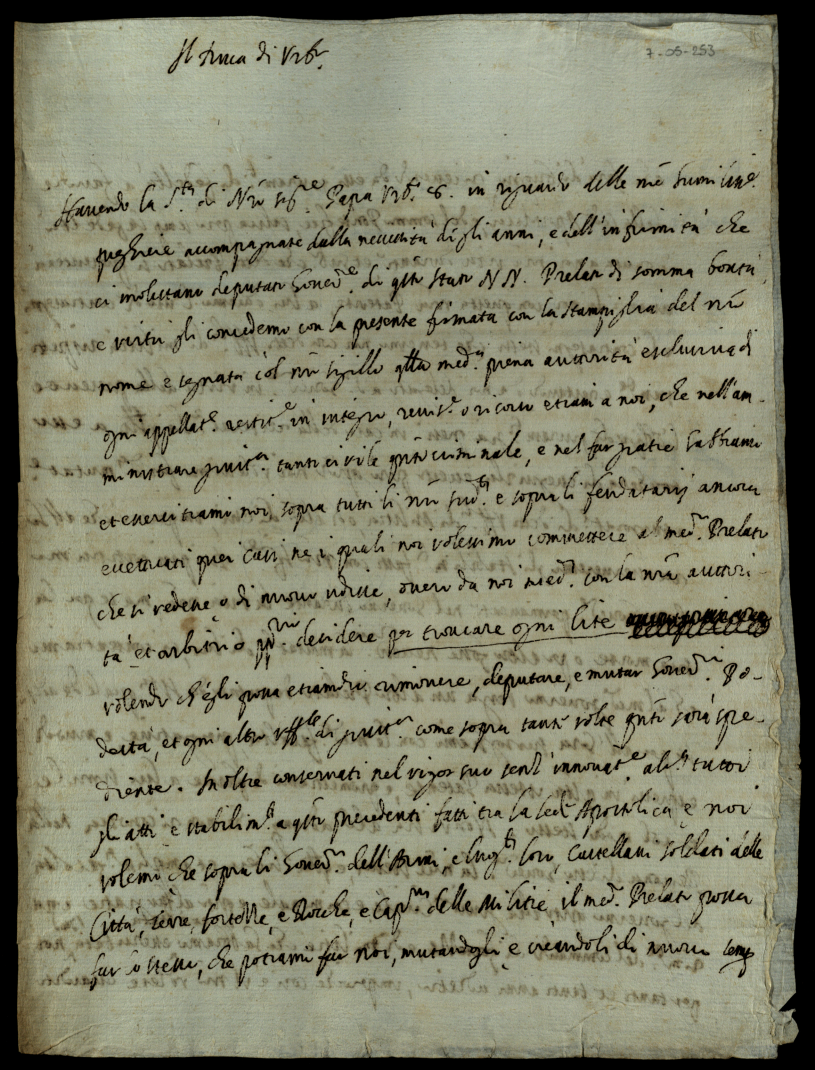 Il Duca di Urb.º
7-05-253
Havendo la S.tà di Nrõ Sig.re Papa Urb.º 8. in riguardo delle nrẽ humiliss.e
preghiere accompagnate dalla necessità degli anni, e dell'infirmità che
ci molestano deputato Govern.re di qsto Stato N N. Prelato di somma bontà,
e virtù gli concedemo con la presente firmata con la stampiglia del nrõ
nome e segnata col nrõ sigillo qlla med.a piena autorità esclusiva di
ogni appellat.e restit.e in integro, revis.e o ricorso etiam a noi, che nell'am-
ministrare giustit.a tanto civile qnto criminale, e nel far gratie habbiamo
et essercitiamo noi sopra tutti li nrĩ sud.ti e sopra li feudatarij ancora
eccettuati quei casi ne i quali noi volessimo commettere al med.o Prelato
che si vedesse o di nuovo udisse, overo da noi med.i con la nrã auttori-
tà et arbitrio pp.rio decidere per troncare ogni lite
volendo ch'egli possa etiamdio rimovere, deputare, e mutar Govern.ri Po-
destà, et ogni altro uff.le di giustit.a come sopra tante volte qnto sarà spe-
diente. Inoltre conservati nel vigor suo senz'innovat.e alc.a tutti
gli atti e stabilim.ti a qsto precedenti fatti tra la Sede Apostolica e noi
volemo che sopra li Govern.ri dell'Armi, e luog.ti loro, Castellani soldati delle
Città, Terre, fortezze, e Rocche, e Cap.ni delle Militie il med.o Prelato possa
far lo stesso, che potiamo far noi, mutandogli e creandoli di nuovo